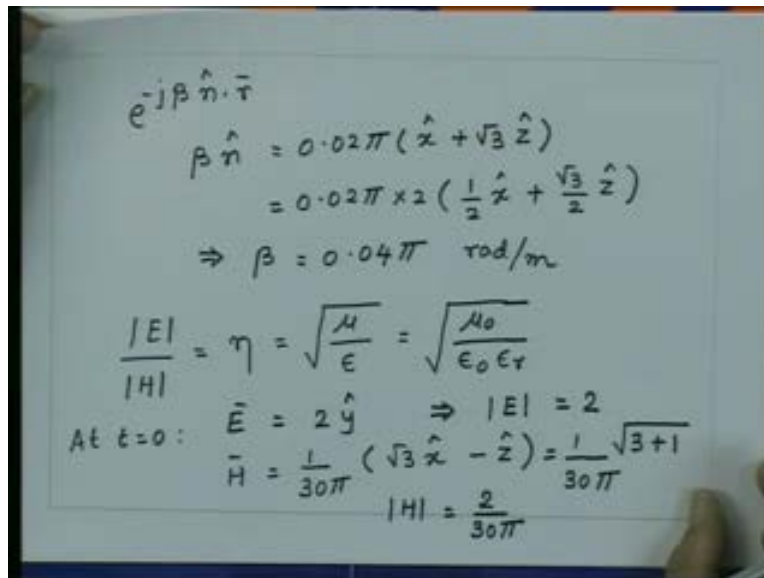 e^{-jβ n̂·r̄}
β n̂ = 0.02π ( x̂ + √3 ẑ )
= 0.02π × 2 ( 1/2 x̂ + √3/2 ẑ )
⇒ β = 0.04π rad/m
|E|/|H| = η = √(μ/ϵ) = √(μ₀/(ϵ₀ ϵᵣ))
At t=0 : Ē = 2ŷ ⇒ |E| = 2
H̄ = 1/30π ( √3 x̂ - ẑ ) = 1/30π √(3+1)
|H| = 2/30π